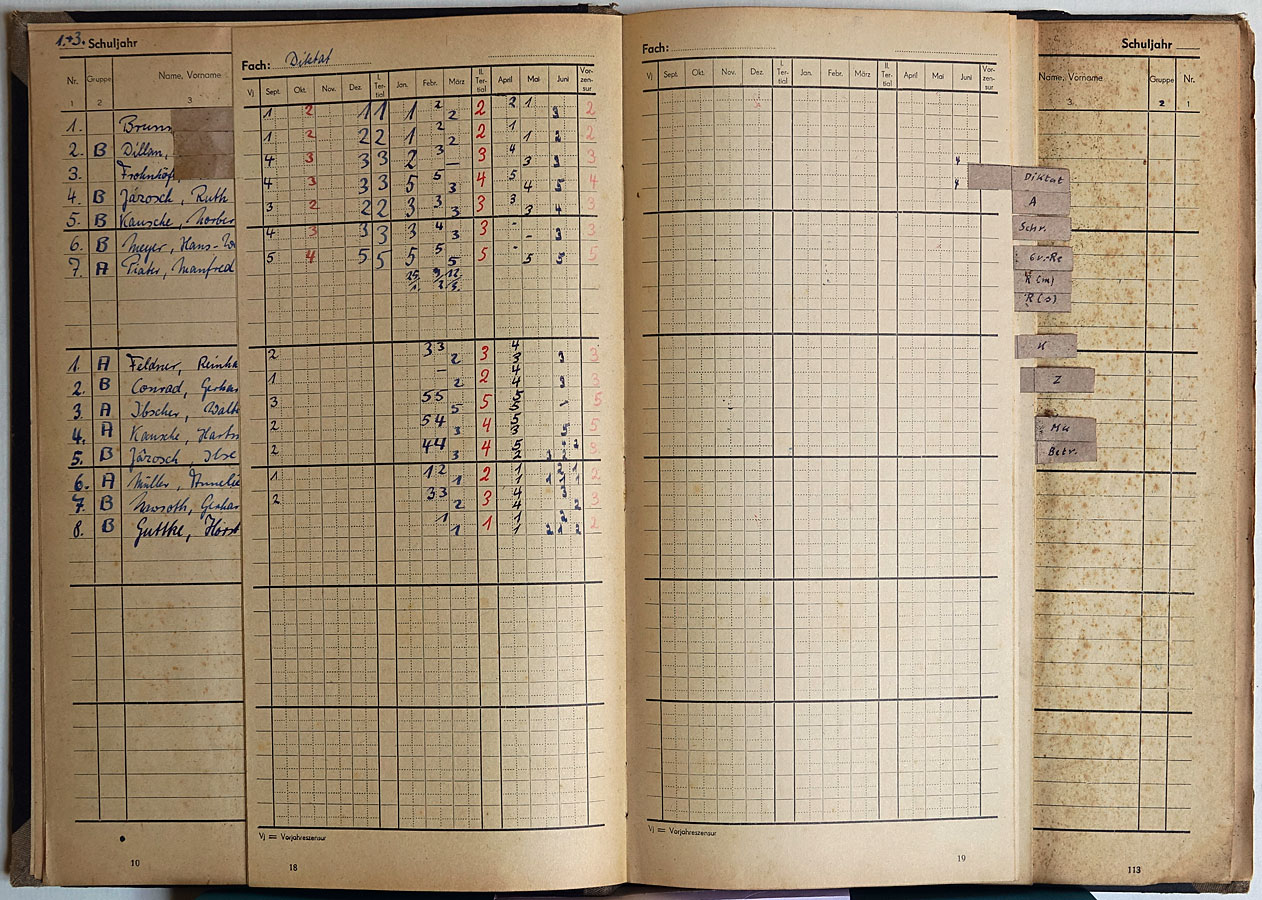 1.+3. Schuljahr
Nr. Gruppe Name, Vorname
1 2 3
1. Brunn
2. B Dillan,
3. Frohnhöf
4. B Järosch, Ruth
5. B Kausche, Norber
6. B Meyer, Hans-Wo
7. A Präter, Manfred
1. A Feldner, Reinha
2. B Conrad, Gerhar
3. A Ibscher, Walte
4. A Kausche, Hartm
5. B Järosch, Ilse
6. A Müller, Annelie
7. B Nawroth, Gerhar
8. B Guttke, Horst
10
Fach: Diktat
Vj Sept. Okt. Nov. Dez. I. Ter-tial Jan. Febr. März II. Ter-tial April Mai Juni Vor-zen-sur
1 2 1 1 1 2 2 2 2 1 3 2
1 2 2 2 1 2 2 2 1 1 2 2
4 3 3 3 2 3 – 3 4 3 3 3
4 3 3 3 5 5 3 4 5 4 5 4
3 2 2 2 3 3 3 3 3 3 4 3
4 3 3 3 3 4 3 3 - - 3 3
5 4 5 5 5 5 5 5 - 5 5 5
25/1. 9/2 12./3.
2 3 3 2 3 4 3 3 3
1 – 2 2 4 4 3 3
3 5 5 5 5 5 5 – 5
2 5 4 3 4 5 3 5 5
2 4 4 3 4 5 2 3 2 2 3
1 1 2 1 2 1 1 2 1 1 1 1 2
2 3 3 2 3 4 4 3 2 3
1 1 1 1 1 2 2 1 2 2
Vj = Vorjahreszensur
18
Fach:
Vj Sept. Okt. Nov. Dez. I. Ter-tial Jan. Febr. März II. Ter-tial April Mai Juni Vor-zen-sur
4
4
Vj = Vorjahreszensur
19
Diktat
A
Schr.
Gr.-Re
R (m)
R (s)
H
Z
Mu
Betr.
Schuljahr
Name, Vorname Gruppe Nr.
3 2 1
113